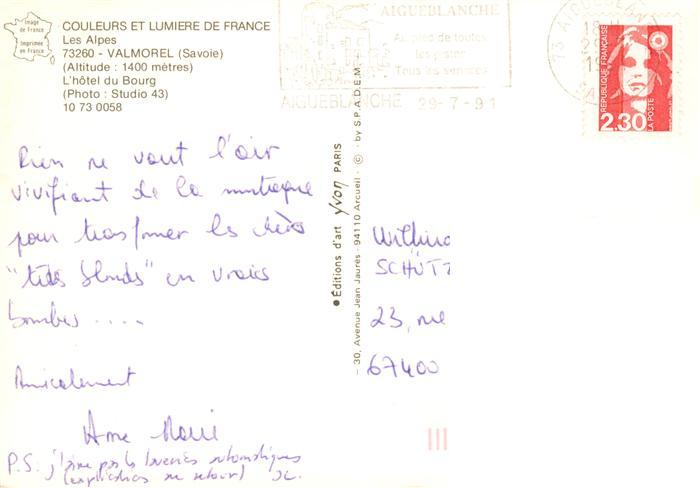 Image
de France
Imprimée
en France
COULEURS ET LUMIERE DE FRANCE
Les Alpes
73260 - VALMOREL (Savoie)
(Altitude : 1400 mètres)
L'hôtel du Bourg
(Photo : Studio 43)
10 73 0058
AIGUEBLANCHE
Au pied de toutes
les pistes
Tous les services
AIGUEBLANCHE 29-7-91
73 AIGUEBLANCHE
RÉPUBLIQUE FRANÇAISE
2,30
LA POSTE
Rien ne vaut l'air
vivifiant de la montagne
pour transformer les chères
"têtes blondes" en vraies
bombes ....
Amicalement
Anne Marie
P.S. j'aime pas les laveries automatiques
(explications au retour)
● Éditions d'art yvon PARIS
- 30, Avenue Jean Jaurès - 94110 Arcueil - © - by S.P.A.D.E.M.
SCHÜTT
23, rue
67400